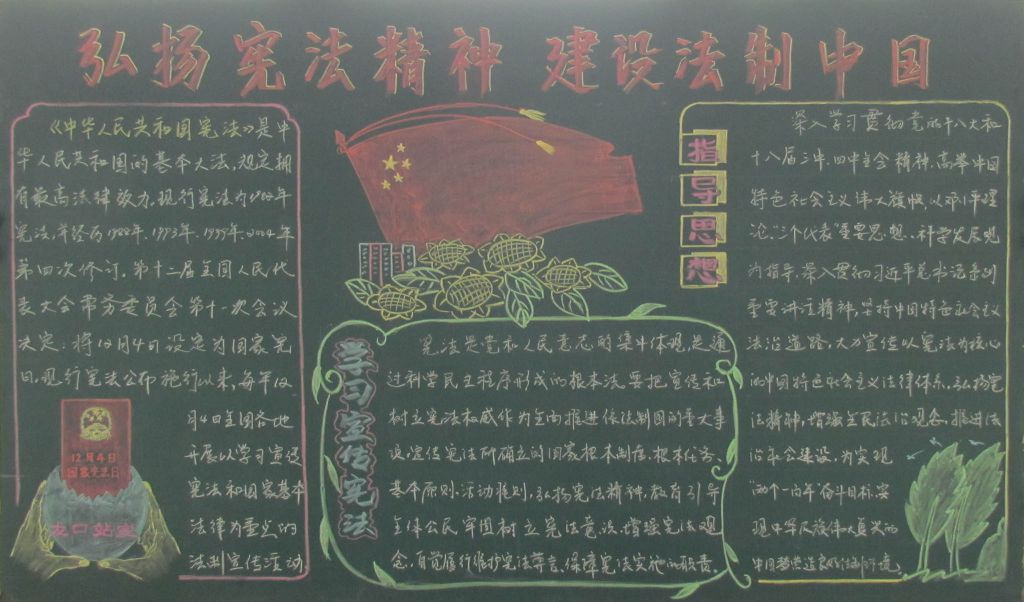 弘扬宪法精神 建设法制中国
《中华人民共和国宪法》是中
华人民共和国的基本大法,规定拥
有最高法律效力。现行宪法为1982年
宪法,并经历1988年、1993年、1999年、2004年
第四次修订。第十二届全国人民代
表大会常务委员会第十一次会议
决定:将12月4日设定为国家宪
日,现行宪法公布施行以来,每年12
月4日全国各地
开展以学习宣传
宪法和国家基本
法律为重点的
法制宣传活动
12月4日
国家宪法日
龙口站宣
学习宣传宪法
宪法是党和人民意志的集中体现,是通
过科学民主程序形成的根本法,要把宣传和
树立宪法权威作为全面推进依法制国的重大事
宣传宪法所确立的国家根本制度、根本任务、
基本原则、活动准则,弘扬宪法精神,教育引导
全体公民牢固树立宪法意识,增强宪法观
念,自觉履行维护宪法尊言、保障宪法实施的职责。
指导思想
深入学习贯彻党的十八大和
十八届三中、四中全会精神,高举中国
特色社会主义伟大旗帜,以邓小平理
论、“三个代表”重要思想、科学发展观
为指导,深入贯彻习近平总书记系列
重要讲话精神,坚持中国特色社会主义
法治道路,大力宣传以宪法为核心
的中国特色社会主义法律体系,弘扬宪
法精神,增强全民法治观念,推进法
治社会建设,为实现
“两个一百年”奋斗目标、实
现中华民族伟大复兴的
中国梦营造良好法制环境。